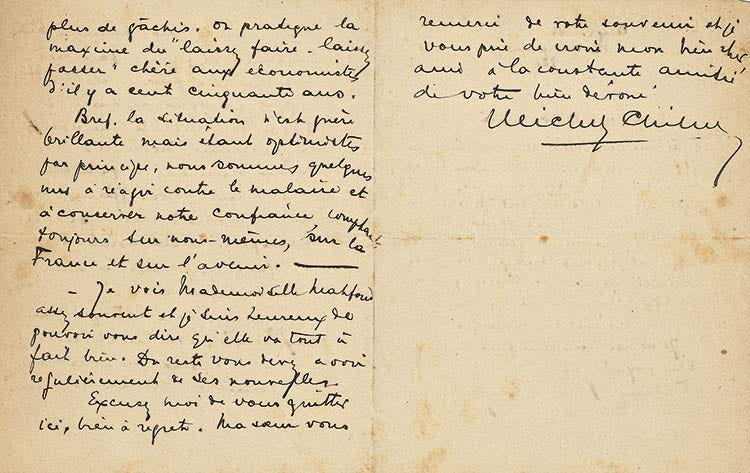 plus de gâchis. On pratique la
maxime du "laissez faire - laissez
passer" chère aux économistes
d'il y a cent cinquante ans.
Bref, la situation n'est guère
brillante mais étant optimistes
par principe, nous sommes quelques
uns à réagir contre le malaise et
à conserver notre confiance comptant
toujours sur nous-mêmes, sur la
France et sur l'avenir.
- Je vois Mademoiselle
assez souvent et je suis heureux de
pouvoir vous dire qu'elle va tout à
fait bien. Du reste vous devez avoir
régulièrement de ses nouvelles
Excusez moi de vous quitter
ici, bien à regret. Ma sœur vous
remercie de votre souvenir et je
vous prie de croire mon bien cher
ami à la constante amitié
de votre bien dévoué